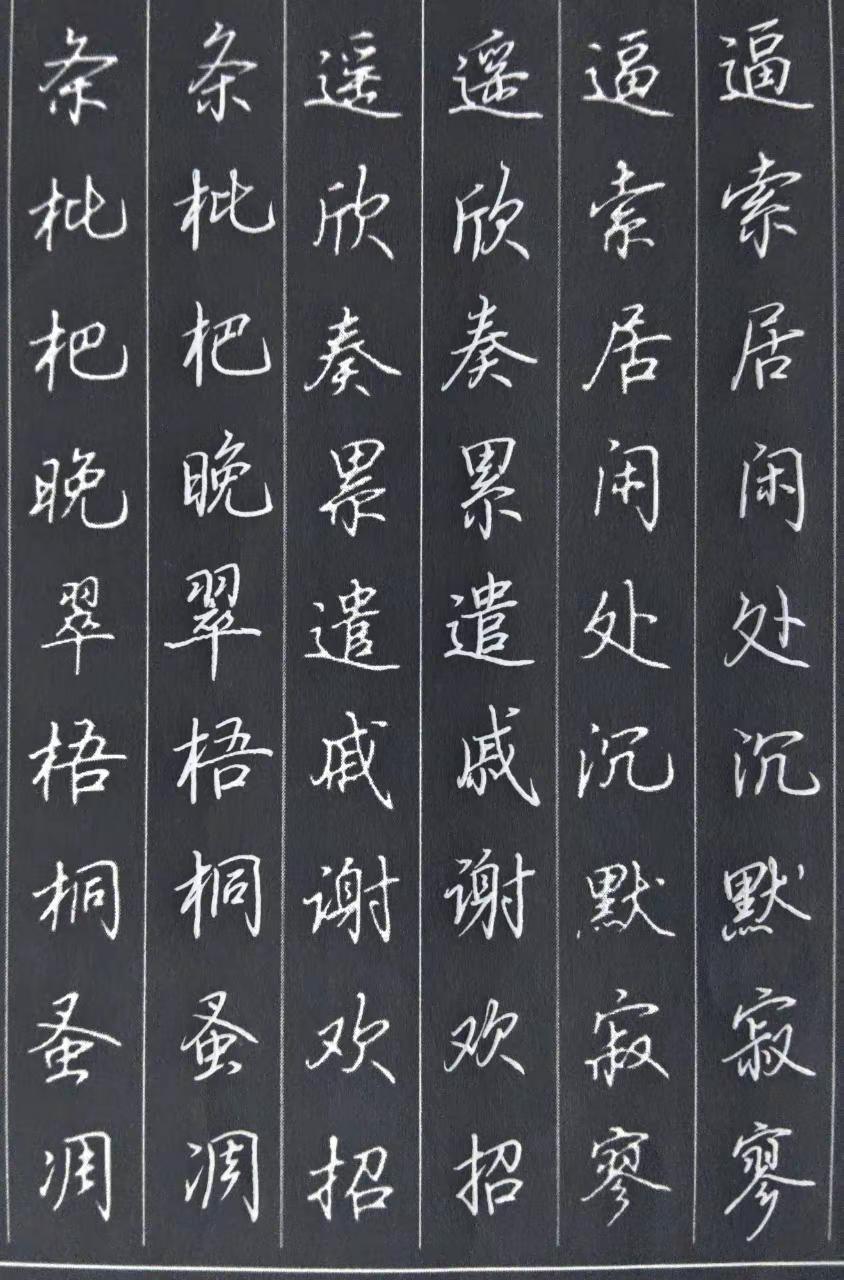 逼索居闲处沉默寂寥
逼索居闲处沉默寂寥
遥欣奏累遣戚谢欢招
遥欣奏累遣戚谢欢招
条枇杷晚翠梧桐蚤凋
条枇杷晚翠梧桐蚤凋